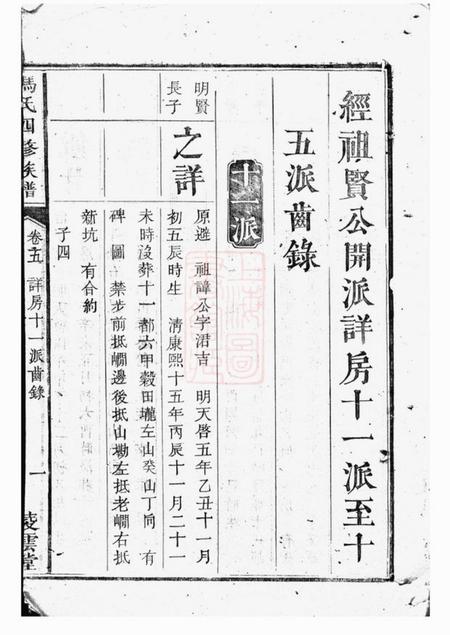 經祖賢公開派詳房十一派至十
五派齒錄
十一派
明賢
長子
之詳
原遜 祖諱公字涒吉 明天啓五年乙丑十一月
初五辰時生 清康熙十五年丙辰十一月二十一
未時沒葬十一都六甲穀田壠左山癸山丁向 有
碑 圖 禁步前抵嵧邊後抵山塝左抵老嵧右抵
新坑 有合約
子四
馮氏四修族譜
卷五 詳房十一派齒錄
一
凌雲堂